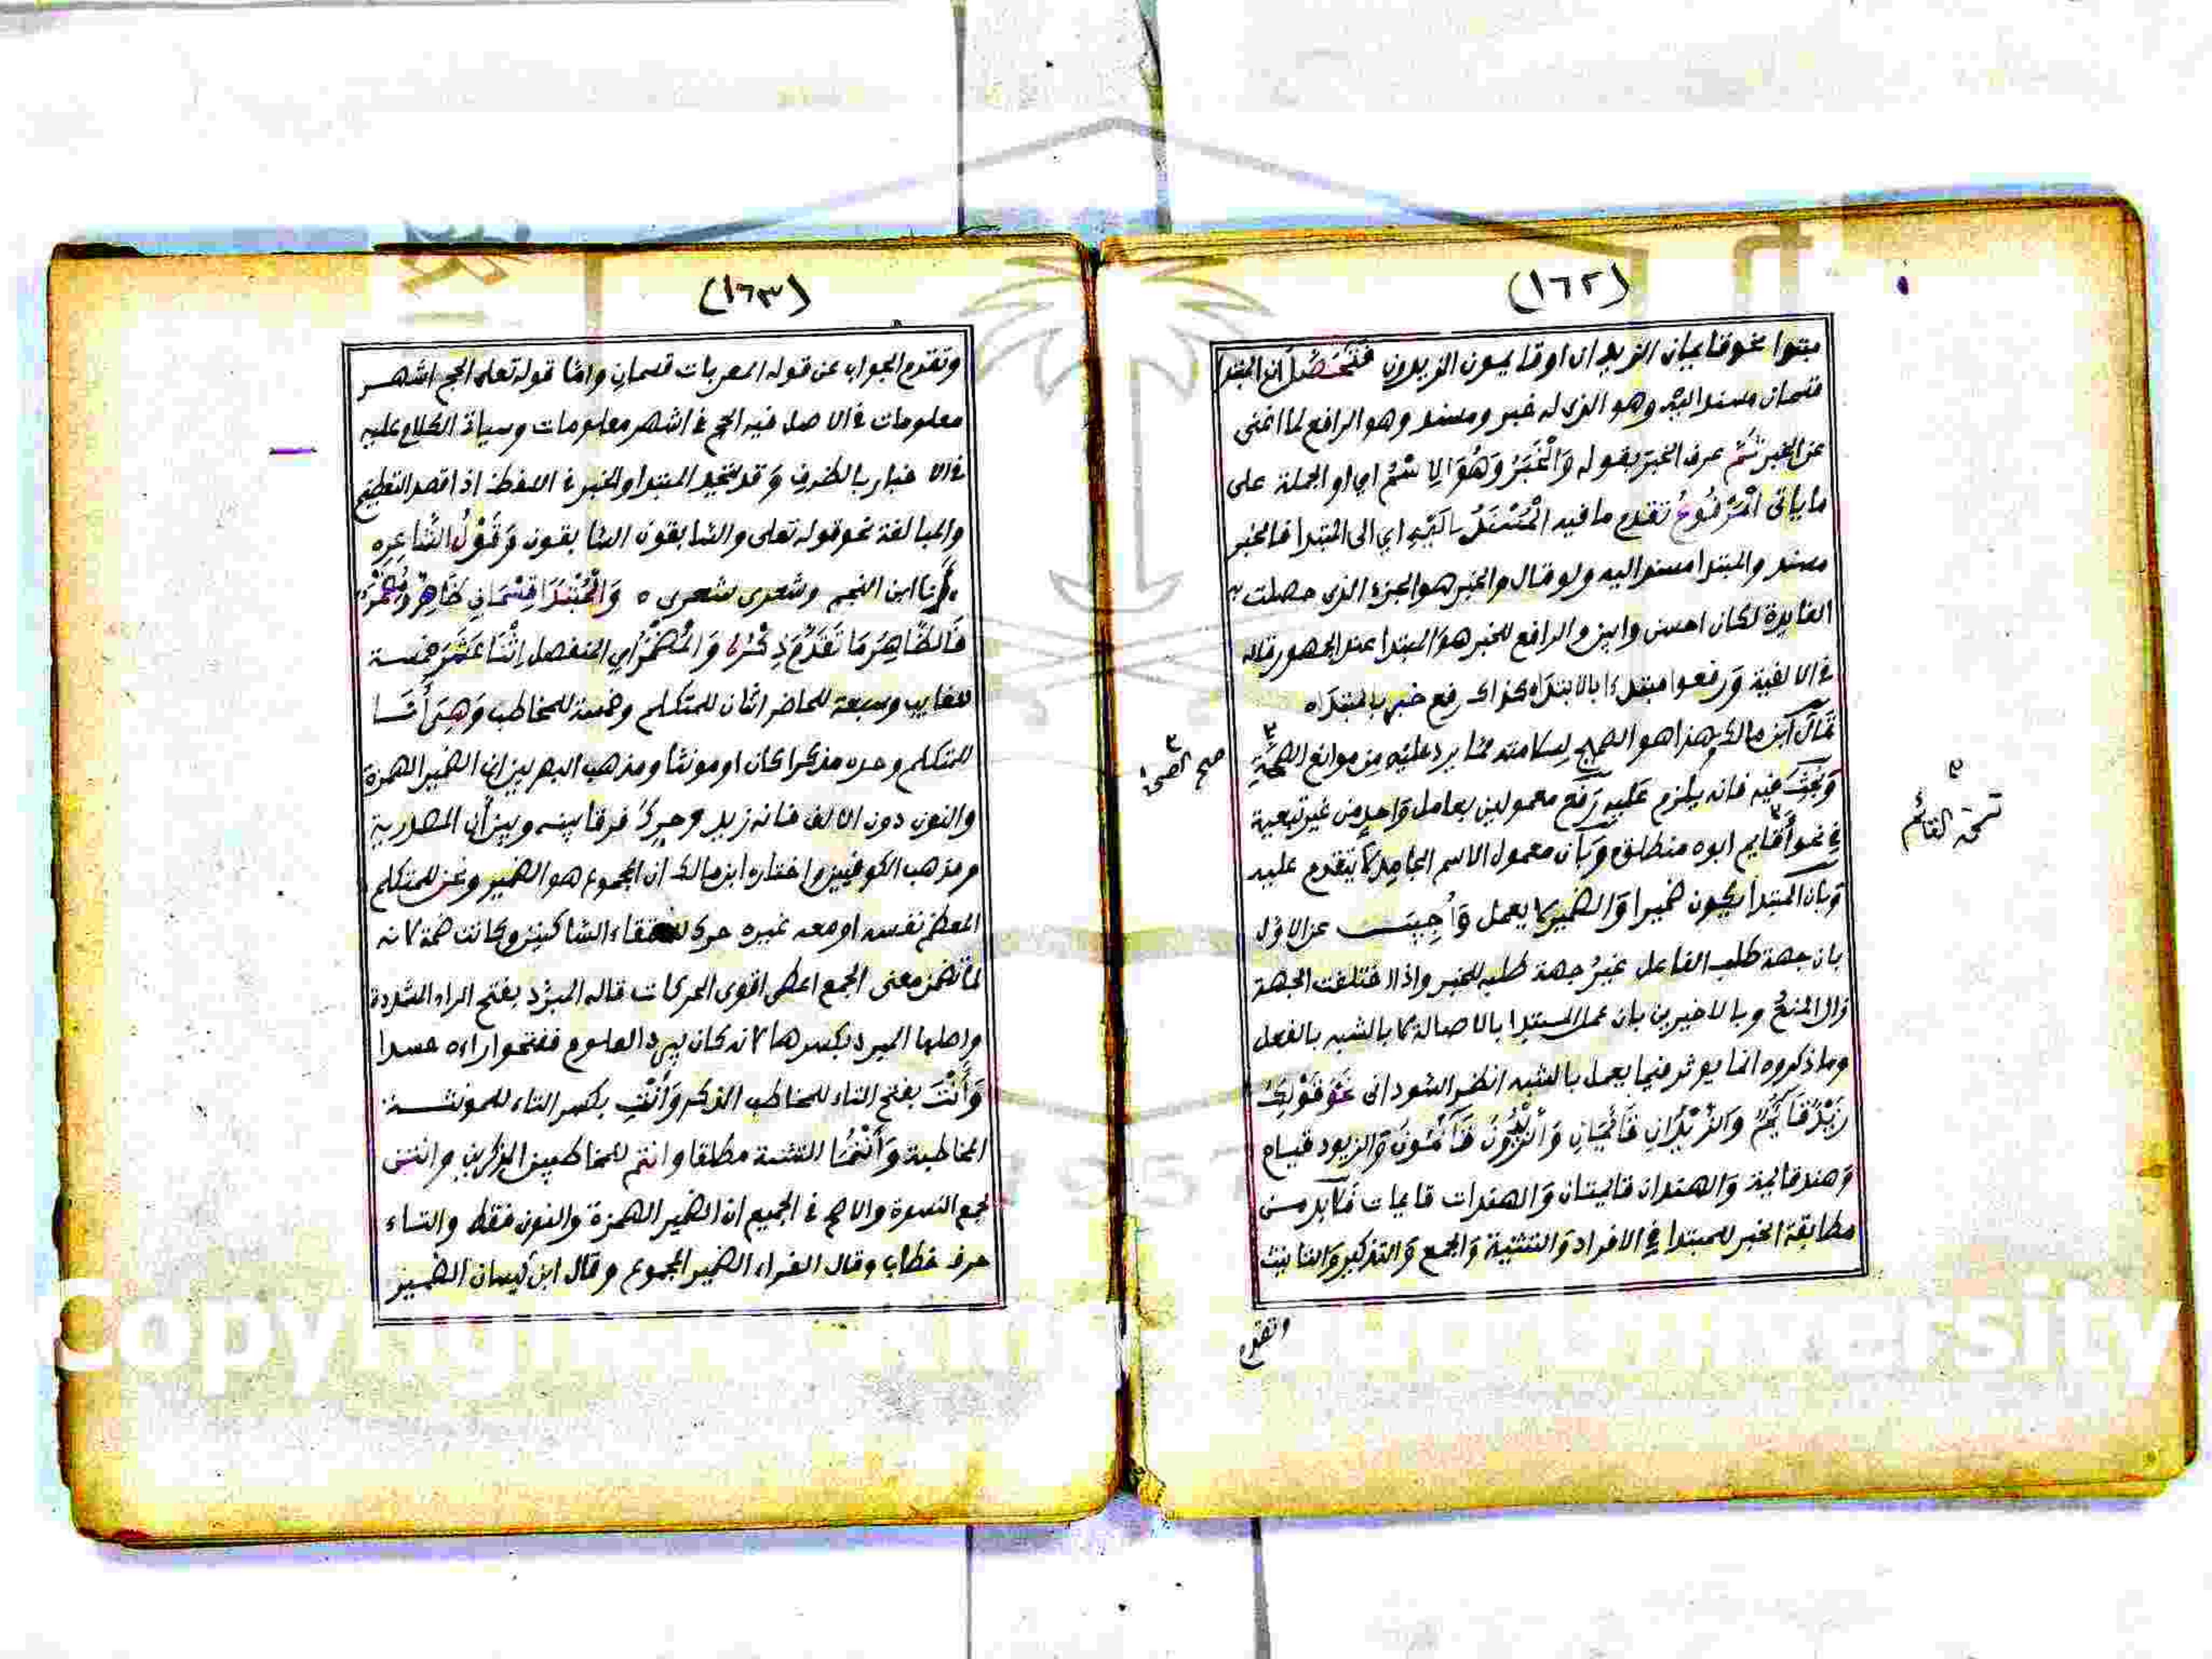 (١٦٢)
مبتدا نحو قايمان الزيدان او قايمون الزيدون فَتَحَصَّلَ أن المبتدا
قسمان مسند اليه وهو الذي له خبر ومسند وهو الرافع لما اغنى
عن الخبر ثُمَّ عرف الخبر بقوله وَالْخَبَرُ وَهُوَ الِاسْمُ اي او الجملة على
ما ياتي الْمَرْفُوعُ تقدم ما فيه الْمُسْنَدُ الَيْهِ اي الى المبتدا فالخبر
مسند والمبتدا مسند اليه ولو قال والخبر هو الجزء الذي حصلت به
الفايدة لكان احسن وابين والرافع للخبر هو المبتدا عند الجمهور قاله
في الالفية وَرفعوا مبتدءا بالابتداه كذاك رفع خبر بالمبتداه
قال ابن مالك وهذا هو الصحيح لسلامته مما يرد عليه من موانع الصحة
وَبُحِثَ فيه فانه يلزم عليه رَفع معمولين بعامل وَاحد من غير تبعية
في نحو أقايم ابوه منطلق وَبأن معمول الاسم الجامد لا يتقدم عليه
وَبان المبتدا يكون ضميرا وَالضمير لا يعمل وَأُجِيبَ عن الاوّل
بان جهة طلب الفاعل غيرُ جهة طلبه للخبر واذا اختلفت الجهة
زال المنعُ وبالاخيرين بان عمل المبتدا بالاصالة لا بالشبه بالفعل
وما ذكروه انما يوثر فيما يعمل بالشبه انظر السوداني نحو قَوْلِكَ
زَيْدٌ قَايِمٌ وَالزَّيْدَانِ قَائِمَانِ وَالزَّيْدُونَ قَائِمُونَ وَالزيود قيام
وَهند قايمة وَالهندان قايمتان وَالهندات قايمات فلابد من
مطابقة الخبر للمبتدا في الافراد وَالتثنية وَالجمع وَالتذكير وَالتانيث
وتقدم
صح
نسخة القائم
(١٦٣)
وتقدم الجواب عن قوله المعربات قسمان واما قوله تعلى الحج اشهر
معلومات فالاصل فيه الحج في اشهر معلومات وسياتي الكلام عليه
في الاخبار بالظرف وَقد يتحد المبتدا والخبر في اللفظ اذا قصد التعظيم
والمبالغة نحو قوله تعلى والسابقون السابقون وَقَوْلُ الشَّاعِرِه
انا ابن النجم وشعرى شعرى ه وَالْمُبْتَدَا قِسْمَانِ ظَاهِرٌ وَمُضْمَرٌ
فَالظَّاهِرُ مَا تَقَدَّمَ ذِكْرُهُ وَالْمُضْمَرُ اي المنفصل اثْنَا عَشَرَ خمسة
للغايب وسبعة للحاضر اثنان للمتكلم وخمسة للمخاطب وَهِيَ أَنَا
للمتكلم وحده مذكرا كان او مونثا ومذهب البصريين ان الضمير الهمزة
والنون دون الالف فانه زيد وحركُ فرقا بينه وبين أن المصدرية
ومذهب الكوفيين واختاره ابن مالك ان المجموع هو الضمير ونحن للمتكلم
المعظم نفسه او معه غيره حرك لالتقاء الساكنين وكانت ضمة لانه
لما تضمن معنى الجمع اعطى اقوى الحركات قاله المبرَّد بفتح الراء المشددة
واصلها المبرد بكسرها لانه كان يبرد العلوم ففتحوا راءه حسدا
وَأَنْتَ بفتح التاء للمخاطب المذكر وَأَنْتِ بكسر التاء للمونثة
المخاطبة وَأَنْتُمَا للتثنية مطلقا وانتم للمخاطبين المذكرين وانتن
لجمع النسوة والاصح في الجميع ان الضمير الهمزة والنون فقط والتاء
حرف خطاب وقال الفراء الضمير المجموع وقال ابن كيسان الضمير
Copyright © King Saud University
1957